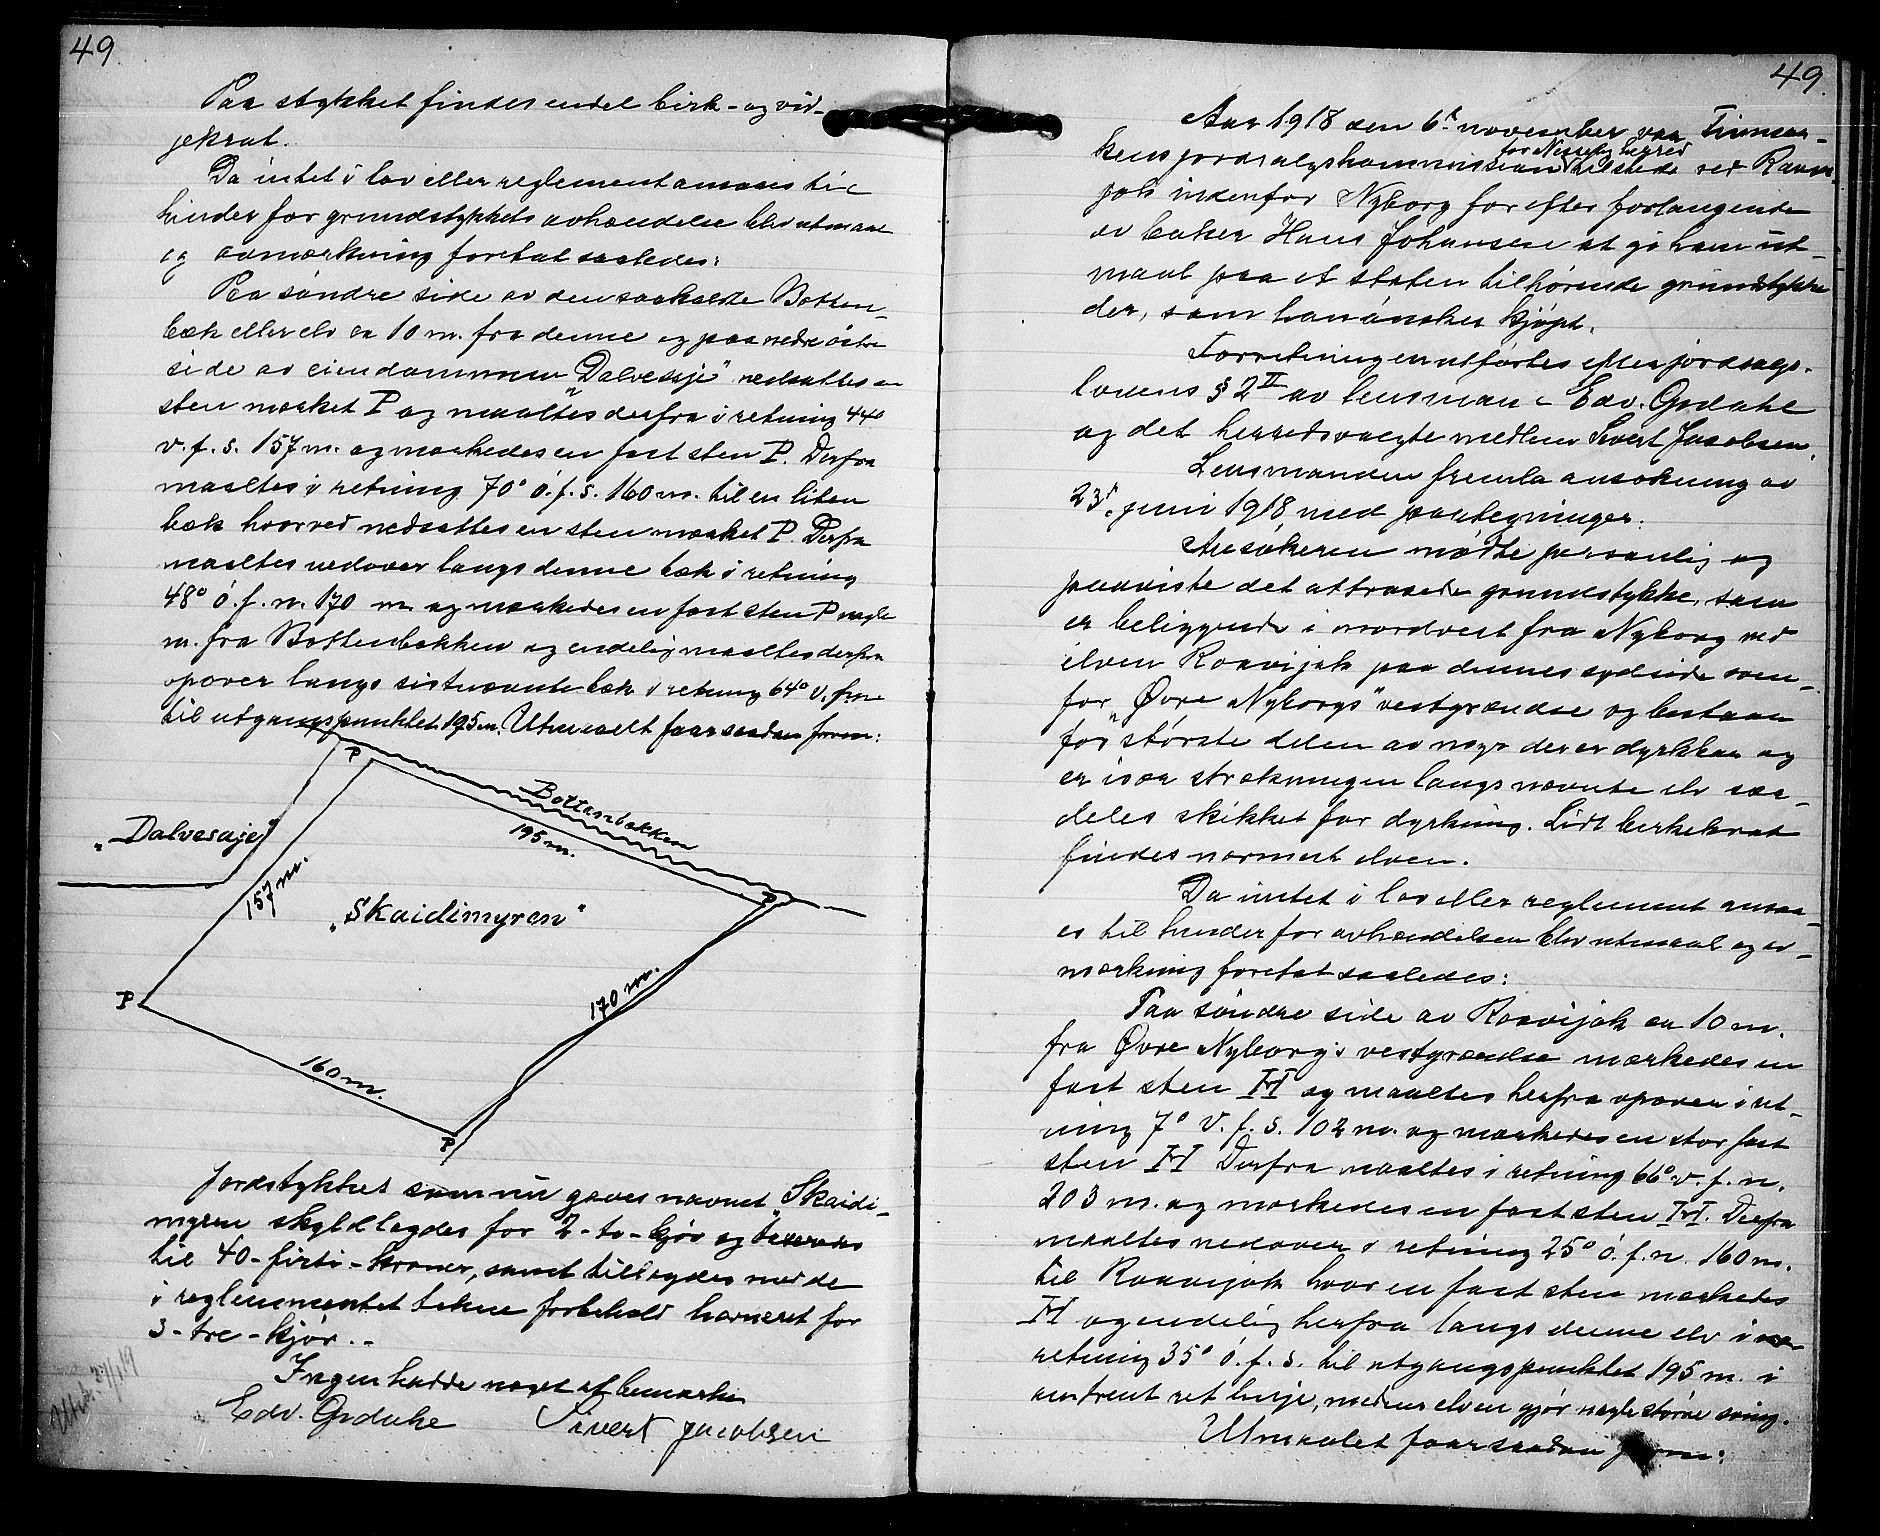 49.
Paa stykket findes endel birk- og vid-
jekrat.
Da intet i lov eller reglement ansaaes til
hinder for grundstykkets avhændelse blev utmaal
og avmerkning foretat saaledes:
Paa søndre side av den saakaldte Botten-
bæk eller elv ca 10 m. fra denne og paa nedre østre
side av eiendommen "Dalvesaje" nedsattes en
sten merket P og maaltes derfra i retning 44°
v. f. s. 157 m. og merkedes en fast sten P. Derfra
maaltes i retning 70° ó. f. s. 160 m. til en liten
bæk hvorved nedsattes en sten merket P. Derfra
maaltes nedover langs denne bæk i retning
48° ó. f. n. 170 m og merkedes en fast sten P nogle
m. fra Bottenbekken og endelig maaltes derfra
opover langs sistnævnte bæk i retning 64° v. f. n.
til utgangspunktet 195 m. Utmaalt faar saadan form:
P
Bottenbekken
195 m.
"Dalvesaje"
157 m.
P
"Skaidimyren"
170 m.
P
160 m.
P
Jordstykket som nu gaves navnet "Skaidi-
myren skyldlagdes for 2 - to - kjør og taxeredes
til 40 - firti - kroner, samt tillagdes med de
i reglementet tekne forbehold havneret for
3 - tre - kjør. -
Ingen hadde noget at bemerke
Edv. Grdahl
Sivert Jacobsen
49.
Aar 1918 den 6te november var Finmar-
for Nesseby herred
kens jordsalgskommission tilstede ved Raavi-
jok indenfor Nyborg for efter forlangende
av baker Hans Johansen at gi ham ut-
maal paa et staten tilhørende grundstykke
der, som han ønsker kjøpt.
Forretningen utførtes efter jordsalgs-
lovens § 2 II av lensmand Edv. Grdahl
og det herredsvalgte medlem Sivert Jacobsen.
Lensmanden fremla ansøkning av
23de juni 1918 med paategninger.
Ansøkeren mødte personlig og
paaviste det attraaede grundstykke, som
er beliggende i nordvest fra Nyborg ved
elven Raavijok paa dennes sydside oven-
for "Øvre Nyborgs" vestgrændse og bestaar
for største delen av myr der er dyrkbar og
er især strækningen langs nævnte elv saa-
deles skikket for dyrkning. Lidt birkekrat
findes nærmest elven.
Da intet i lov eller reglement ansaa-
es til hinder for avhændelsen blev utmaal og av-
merkning foretat saaledes:
Paa søndre side av Raavijok ca 10 m.
fra Øvre Nyborg's vestgrændse merkedes en
fast sten H og maaltes herfra opover i ret-
ning 7° v. f. s. 102 m. og merkedes en stor fast
sten H Derfra maaltes i retning 66° v. f. n.
203 m. og merkedes en fast sten H. Derfra
maaltes nedover i retning 25° ó. f. n. 160 m.
til Raavijok hvor en fast sten merkedes
H og endelig herfra langs denne elv i
retning 35° ó. f. s. til utgangspunktet 195 m. i
omtrent ret linje, medens elven gjør nogle større sving.
Utmaalet faar saadan form: